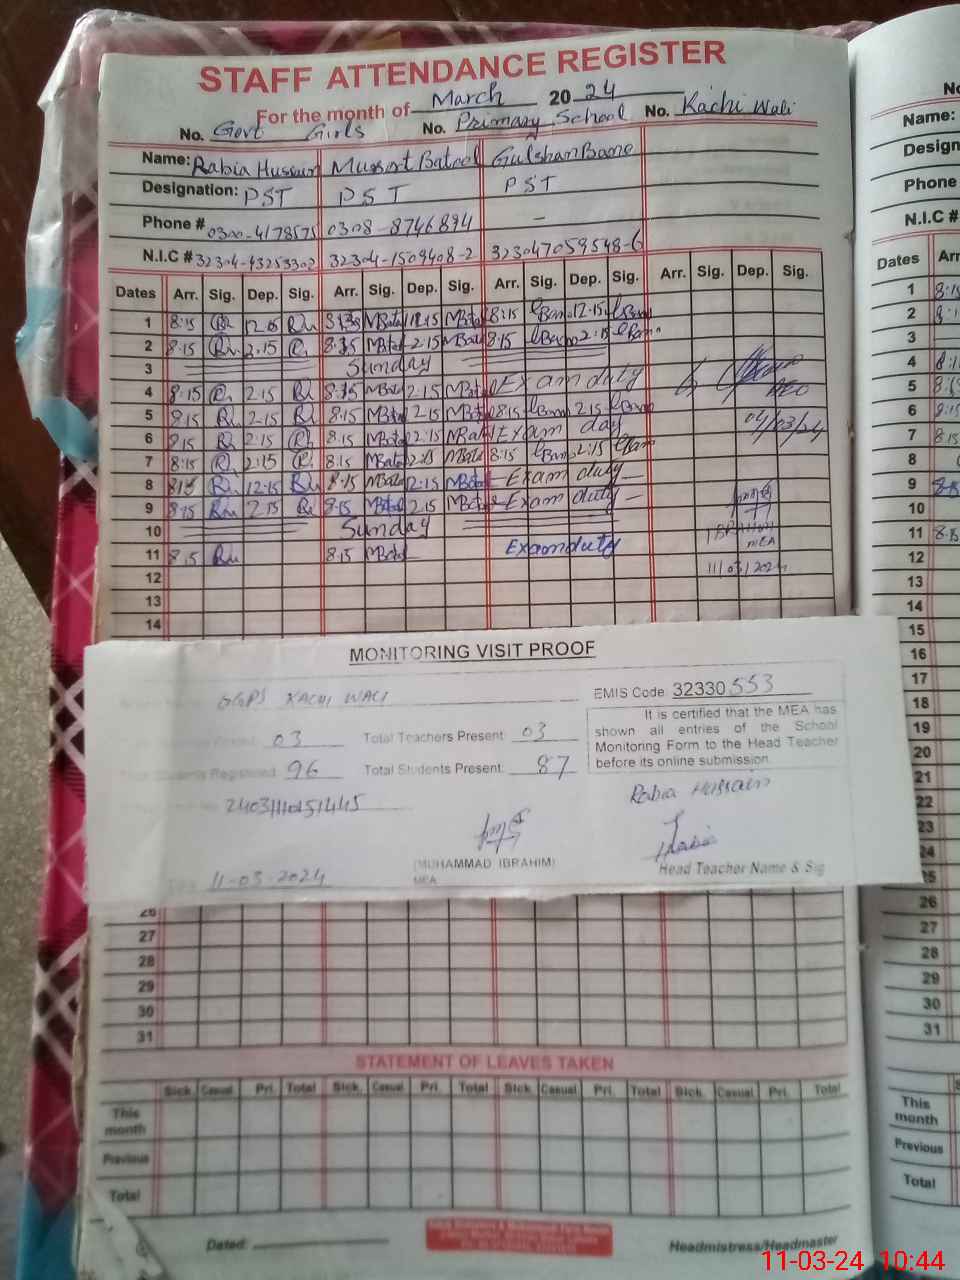 STAFF ATTENDANCE REGISTER
For the month of March 2024
No. Govt Girls No. Primary School No. Kachi Wali
Name: Rabia Hussain Mussrt Batool Gulshan Bano
Designation: PST PST PST
Phone # 0308-8746894 -
N.I.C # 32304-1509408-2 323047059548-6
Dates Arr. Sig. Dep. Sig. Arr. Sig. Dep. Sig. Arr. Sig. Dep. Sig. Arr. Sig. Dep. Sig.
1 8:15 8:15 12:15
2 8:15 2:15 8:35 2:15 8:15 2:15
3 Sunday
4 8:15 2:15 8:35 2:15 Exam duty
5 8:15 2:15 8:15 2:15 8:15 2:15
04/03/24
6 8:15 2:15 8:15 2:15 Exam day
7 8:15 2:15 8:15 2:15 8:15 2:15
8 8:15 12:15 8:15 12:15 Exam duty
9 8:15 2:15 8:15 2:15 Exam duty
10 Sunday
IBRAHIM
MEA
11 8:15 8:15 Exam duty
11/03/2024
12
13
14
MONITORING VISIT PROOF
GGPS KACHI WALI
EMIS Code: 32330553
It is certified that the MEA has
shown all entries of the School
Monitoring Form to the Head Teacher
before its online submission.
03 Total Teachers Present: 03
Students Registered: 96 Total Students Present: 87
Rabia Hussain
(MUHAMMAD IBRAHIM)
MEA
Head Teacher Name & Sig
11-03-2024
26
27
28
29
30
31
STATEMENT OF LEAVES TAKEN
Sick Casual Pri. Total Sick. Casual Pri. Total Sick Casual Pri. Total Sick. Casual Pri. Total
This
month
Previous
Total
Dated:
Headmistress/Headmaster
Name:
Design
Phone
N.I.C #
Dates Arr
1 8:15
2
3
4
5
6
7 8:15
8
9 8:15
10
11 8:15
12
13
14
15
16
17
18
19
20
21
22
23
24
25
26
27
28
29
30
31
This
month
Previous
Total
11-03-24 10:44